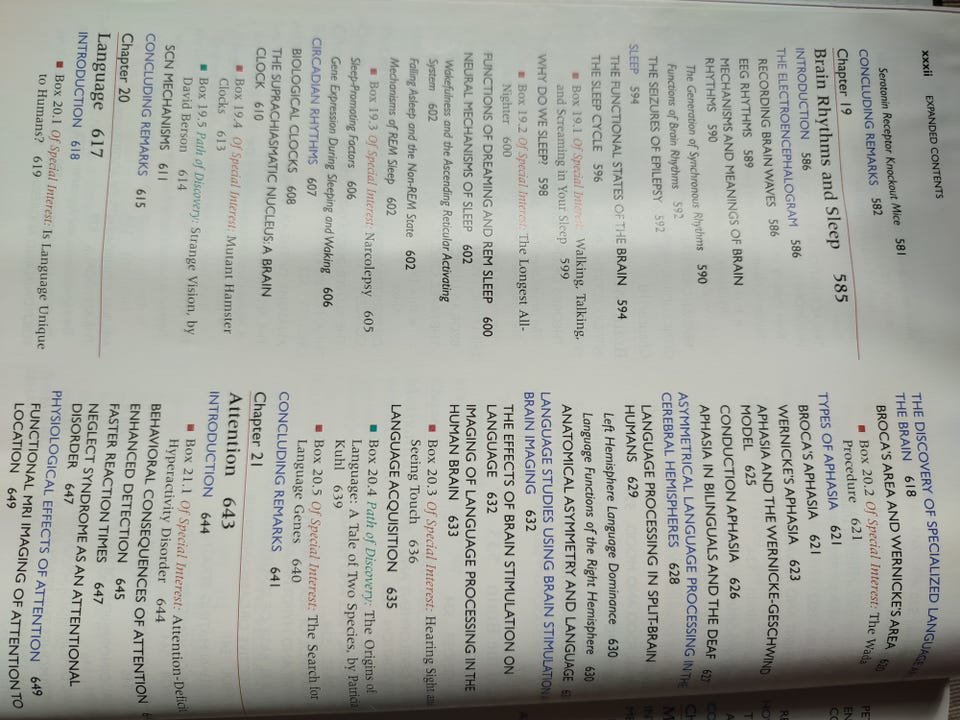 xxxii EXPANDED CONTENTS
Serotonin Receptor Knockout Mice 581
CONCLUDING REMARKS 582
Chapter 19
Brain Rhythms and Sleep 585
INTRODUCTION 586
THE ELECTROENCEPHALOGRAM 586
RECORDING BRAIN WAVES 586
EEG RHYTHMS 589
MECHANISMS AND MEANINGS OF BRAIN
RHYTHMS 590
The Generation of Synchronous Rhythms 590
Functions of Brain Rhythms 592
THE SEIZURES OF EPILEPSY 592
SLEEP 594
THE FUNCTIONAL STATES OF THE BRAIN 594
THE SLEEP CYCLE 596
■ Box 19.1 Of Special Interest: Walking, Talking,
and Screaming in Your Sleep 599
WHY DO WE SLEEP? 598
■ Box 19.2 Of Special Interest: The Longest All-
Nighter 600
FUNCTIONS OF DREAMING AND REM SLEEP 600
NEURAL MECHANISMS OF SLEEP 602
Wakefulness and the Ascending Reticular Activating
System 602
Falling Asleep and the Non-REM State 602
Mechanisms of REM Sleep 602
Sleep-Promoting Factors 606
■ Box 19.3 Of Special Interest: Narcolepsy 605
Gene Expression During Sleeping and Waking 606
CIRCADIAN RHYTHMS 607
BIOLOGICAL CLOCKS 608
THE SUPRACHIASMATIC NUCLEUS: A BRAIN
CLOCK 610
■ Box 19.4 Of Special Interest: Mutant Hamster
Clocks 613
■ Box 19.5 Path of Discovery: Strange Vision, by
David Berson 614
SCN MECHANISMS 611
CONCLUDING REMARKS 615
Chapter 20
Language 617
INTRODUCTION 618
■ Box 20.1 Of Special Interest: Is Language Unique
to Humans? 619
THE DISCOVERY OF SPECIALIZED LANGUAGE
THE BRAIN 618
BROCA'S AREA AND WERNICKE'S AREA
■ Box 20.2 Of Special Interest: The Wada
Procedure 621
TYPES OF APHASIA 621
BROCA'S APHASIA 621
WERNICKE'S APHASIA 623
APHASIA AND THE WERNICKE-GESCHWIND
MODEL 625
CONDUCTION APHASIA 626
APHASIA IN BILINGUALS AND THE DEAF 627
ASYMMETRICAL LANGUAGE PROCESSING IN THE
CEREBRAL HEMISPHERES 628
LANGUAGE PROCESSING IN SPLIT-BRAIN
HUMANS 629
Left Hemisphere Language Dominance 630
Language Functions of the Right Hemisphere 630
ANATOMICAL ASYMMETRY AND LANGUAGE
LANGUAGE STUDIES USING BRAIN STIMULATION
BRAIN IMAGING 632
THE EFFECTS OF BRAIN STIMULATION ON
LANGUAGE 632
IMAGING OF LANGUAGE PROCESSING IN THE
HUMAN BRAIN 633
■ Box 20.3 Of Special Interest: Hearing Sight and
Seeing Touch 636
LANGUAGE ACQUISITION 635
■ Box 20.4 Path of Discovery: The Origins of
Language: A Tale of Two Species, by Patricia
Kuhl 639
■ Box 20.5 Of Special Interest: The Search for
Language Genes 640
CONCLUDING REMARKS 641
Chapter 21
Attention 643
INTRODUCTION 644
■ Box 21.1 Of Special Interest: Attention-Deficit
Hyperactivity Disorder 644
BEHAVIORAL CONSEQUENCES OF ATTENTION
ENHANCED DETECTION 645
FASTER REACTION TIMES 647
NEGLECT SYNDROME AS AN ATTENTIONAL
DISORDER 647
PHYSIOLOGICAL EFFECTS OF ATTENTION 649
FUNCTIONAL MRI IMAGING OF ATTENTION TO
LOCATION 649